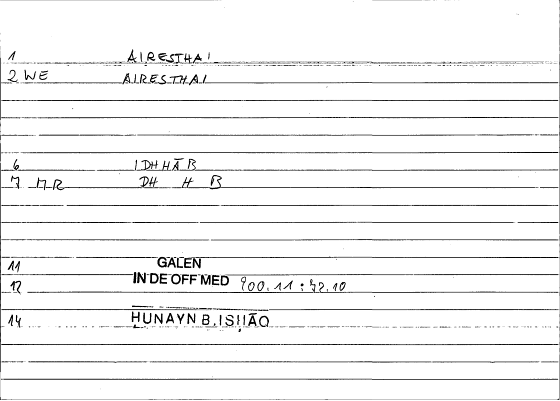 1 AIRESTHAI
2 WE AIRESTHAI
6 IDHHĀB
7 MR DH H B
11 GALEN
12 IN DE OFF MED 900.11 : 72.10
14 ḤUNAYN B. ISḤĀQ